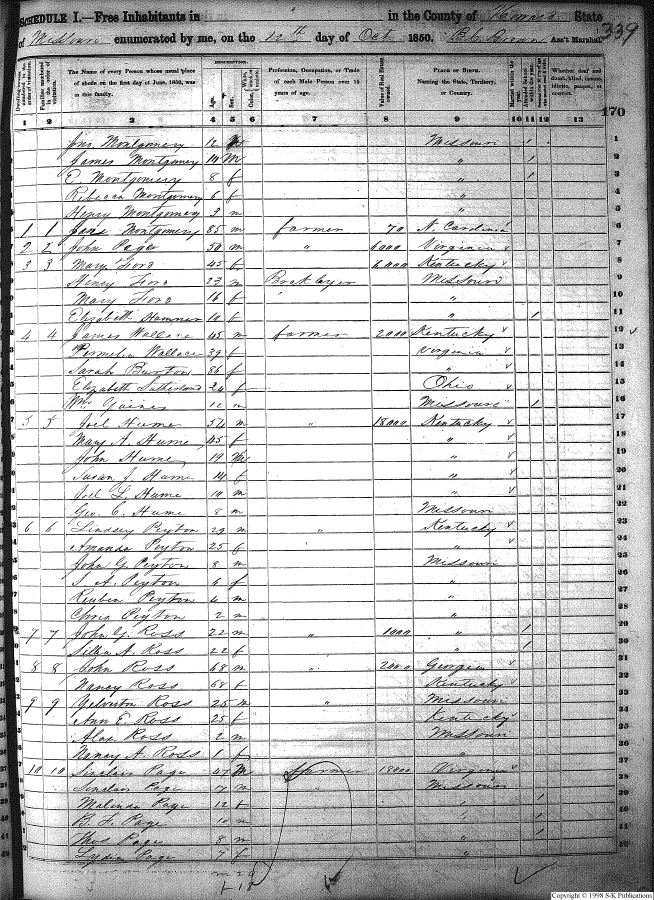 SCHEDULE I.—Free Inhabitants in in the County of Howard State
of Missouri enumerated by me, on the 12th day of Oct 1850. Ass't Marshal. 339
DESCRIPTION.
The Name of every Person whose usual place of abode on the first day of June, 1850, was in this family.
Age. Sex.
Profession, Occupation, or Trade of each Male Person over 15 years of age.
Value of Real Estate owned.
PLACE OF BIRTH. Naming the State, Territory, or Country.
Whether deaf and dumb, blind, insane, idiotic, pauper, or convict.
1 2 3 4 5 6 7 8 9 10 11 12 13
170
Jas. Montgomery 12 m Missouri 1
James Montgomery 10 m " 1
E. Montgomery 8 f " 1
Rebecca Montgomery 6 f "
Henry Montgomery 3 m "
1 1 Montgomery 85 m farmer 70 N. Carolina
2 2 John Page 50 m " 6000 Virginia
3 3 Mary Ford 45 f 6000 Kentucky
Henry Ford 23 m Brick layer Missouri
Mary Ford 16 f "
Elizabeth 10 f " 1
4 4 James Wallace 45 m farmer 2000 Kentucky
Permelia Wallace 39 f Virginia
Sarah Burton 86 f "
Elizabeth Sutherland 24 f Ohio
Wm Gaines 12 m Missouri 1
5 5 Joel Hume 54 m " 18000 Kentucky
Mary A. Hume 45 f "
John Hume 19 m "
Susan J. Hume 14 f "
Joel L. Hume 10 m "
Geo. C. Hume 8 m Missouri
6 6 Lindsey Peyton 29 m " Kentucky
Amanda Peyton 25 f "
John G. Peyton 8 m Missouri
S. A. Peyton 6 f "
Reuben Peyton 4 m "
Chris Peyton 2 m "
7 7 John G. Ross 22 m " 1000 " 1
A. Ross 22 f " 1
8 8 John Ross 68 m " 2000 Georgia
Nancy Ross 68 f Kentucky
9 9 Galverton Ross 25 m " Missouri
Ann E. Ross 25 f Kentucky
Alex Ross 2 m Missouri
Nancy A. Ross 1 f "
10 10 Sinclair Page 47 m farmer 18000 Virginia
Sinclair Page 17 m Missouri
Malinda Page 12 f " 1
B. F. Page 10 m " 1
Thos Page 8 m " 1
Lydia Page 7 f "
Copyright © 1998 S-K Publications